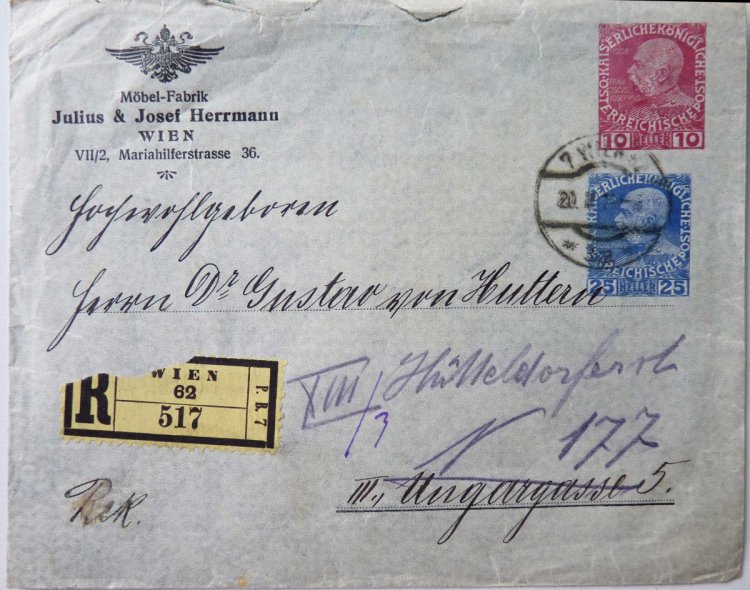 Möbel-Fabrik
Julius & Josef Herrmann
WIEN
VII/2, Mariahilferstrasse 36.
KAISERLICHEKÖNIGLICHE
ÖSTERREICHISCHEPOST
1908
10 HELLER 10
7 WIEN
20.
KAISERLICHEKÖNIGLICHE
25 HELLER 25
Hochwohlgeboren
Herrn Dr Gustav von Huttern
R
WIEN
62
517
P. R. 7
XIII/3
Hütteldorferst
N 177
III., Ungargasse 5.
Rek.